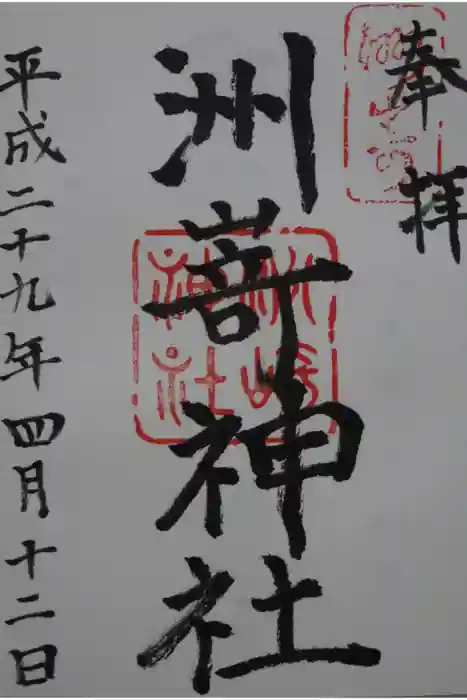 奉拝
洲嵜神社
平成二十九年四月十二日
洲崎
神社